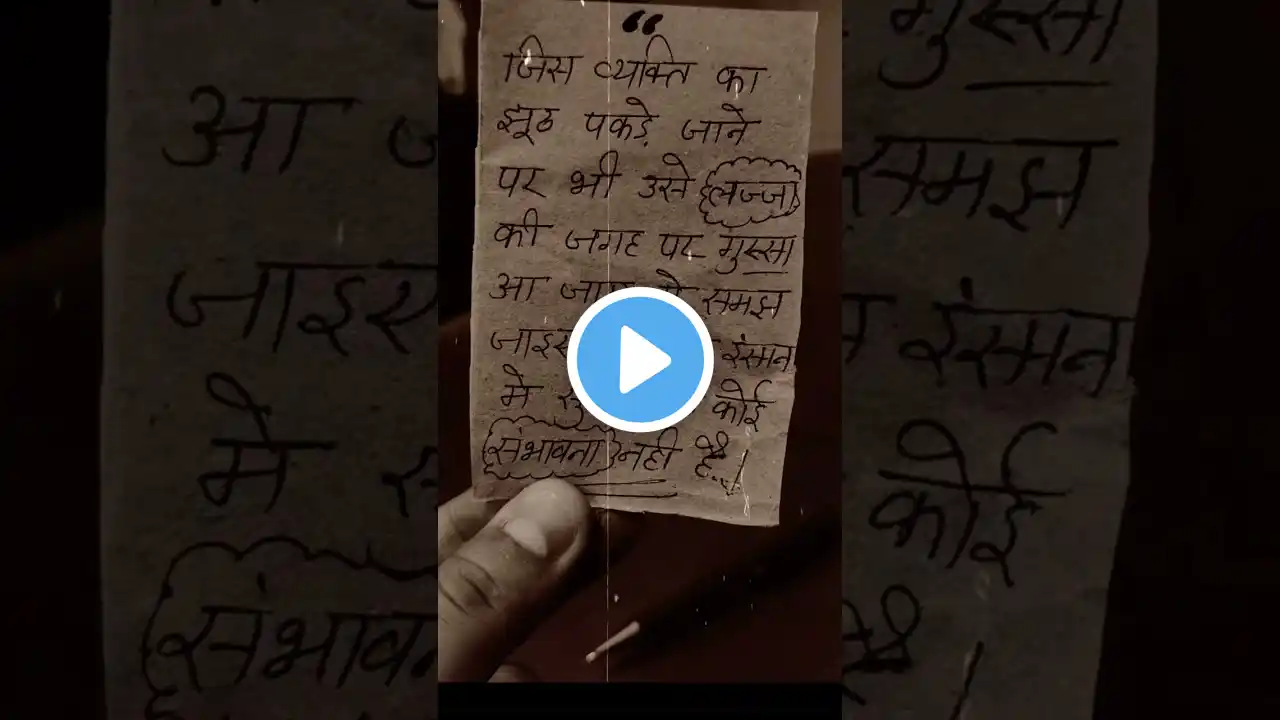 “
जिस व्यक्ति का
झूठ पकड़े जाने
पर भी उसे लज्जा
की जगह पर गुस्सा
आ समझ
इंसान
मे कोई
संभावना नही है..।